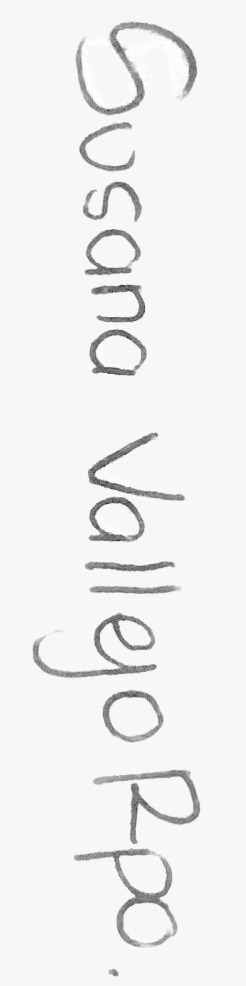 Susana Valleyo Rpo.